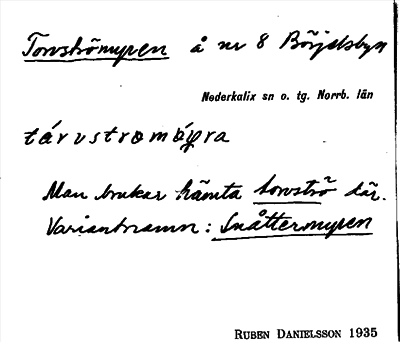 Torvströmyren å nr 8 Börjelsbyn
Nederkalix sn o. tg. Norrb. län
tárvstrømǿ̨yra
Man brukar hämta torvströ där.
Variantnamn: Snåttermyren
RUBEN DANIELSSON 1935